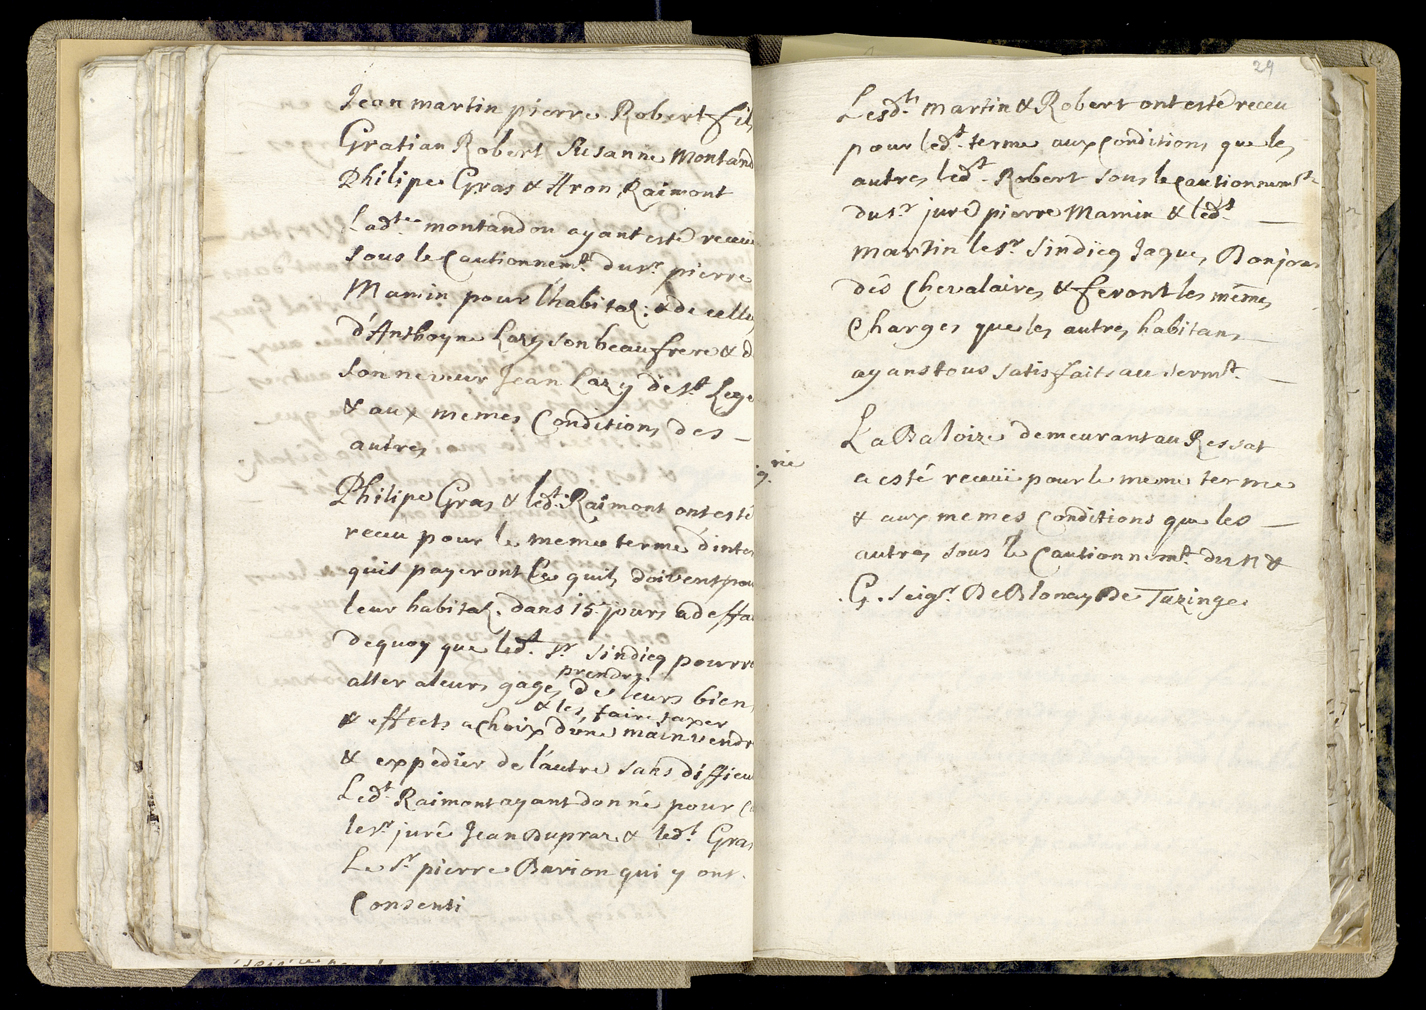 Jean martin pierre Robert fil
Gratian Robert Susanne Montand
Philipe Gras & Aron Raimont
Lad.te montandon ayant esté receüe
sous le Cautionnem.t du s.r pierre
Mamin pour l'habitat. & de celle
d'Anthoyne Lazy son beaufrere & d
son neveur Jean Lazy de S.t Lege
& aux memes Conditions des
autres
Philipe Gras & led.t Raimont ont esté
receu pour le meme terme d'inter
quis payeront ce quils doibent pou
leur habitat. dans 15 jours a deffau
dequoy que led.t s.r sindicq pourra
prendre
aller a leurs gages de leurs bien
& les faire taxer
& effects a choix d'une main vendre
& expedier de l'autre sans difficu
Led.t Raimont ayant donné pour C
le s.r juré Jean Dupraz & led.t Gras
Le s.r pierre Barion qui y ont
Consenti
29
Lesd.ts Martin & Robert ont esté receu
pour led.t terme aux Conditions que les
autres led.t Robert sous le Cautionnem.t
du s.r juré pierre Mamin & led.t
Martin le s.r Sindicq Jaques Bonjour
dés Chevalaires & feront les mêmes
Charges que les autres habitans
ayans tous satisfaits au serm.t
La Baloize demeurant au Ressat
a esté receüe pour le meme terme
& aux memes Conditions que les
autres sous le Cautionnem.t du N &
G. seig.r De Blonay De Tazinge